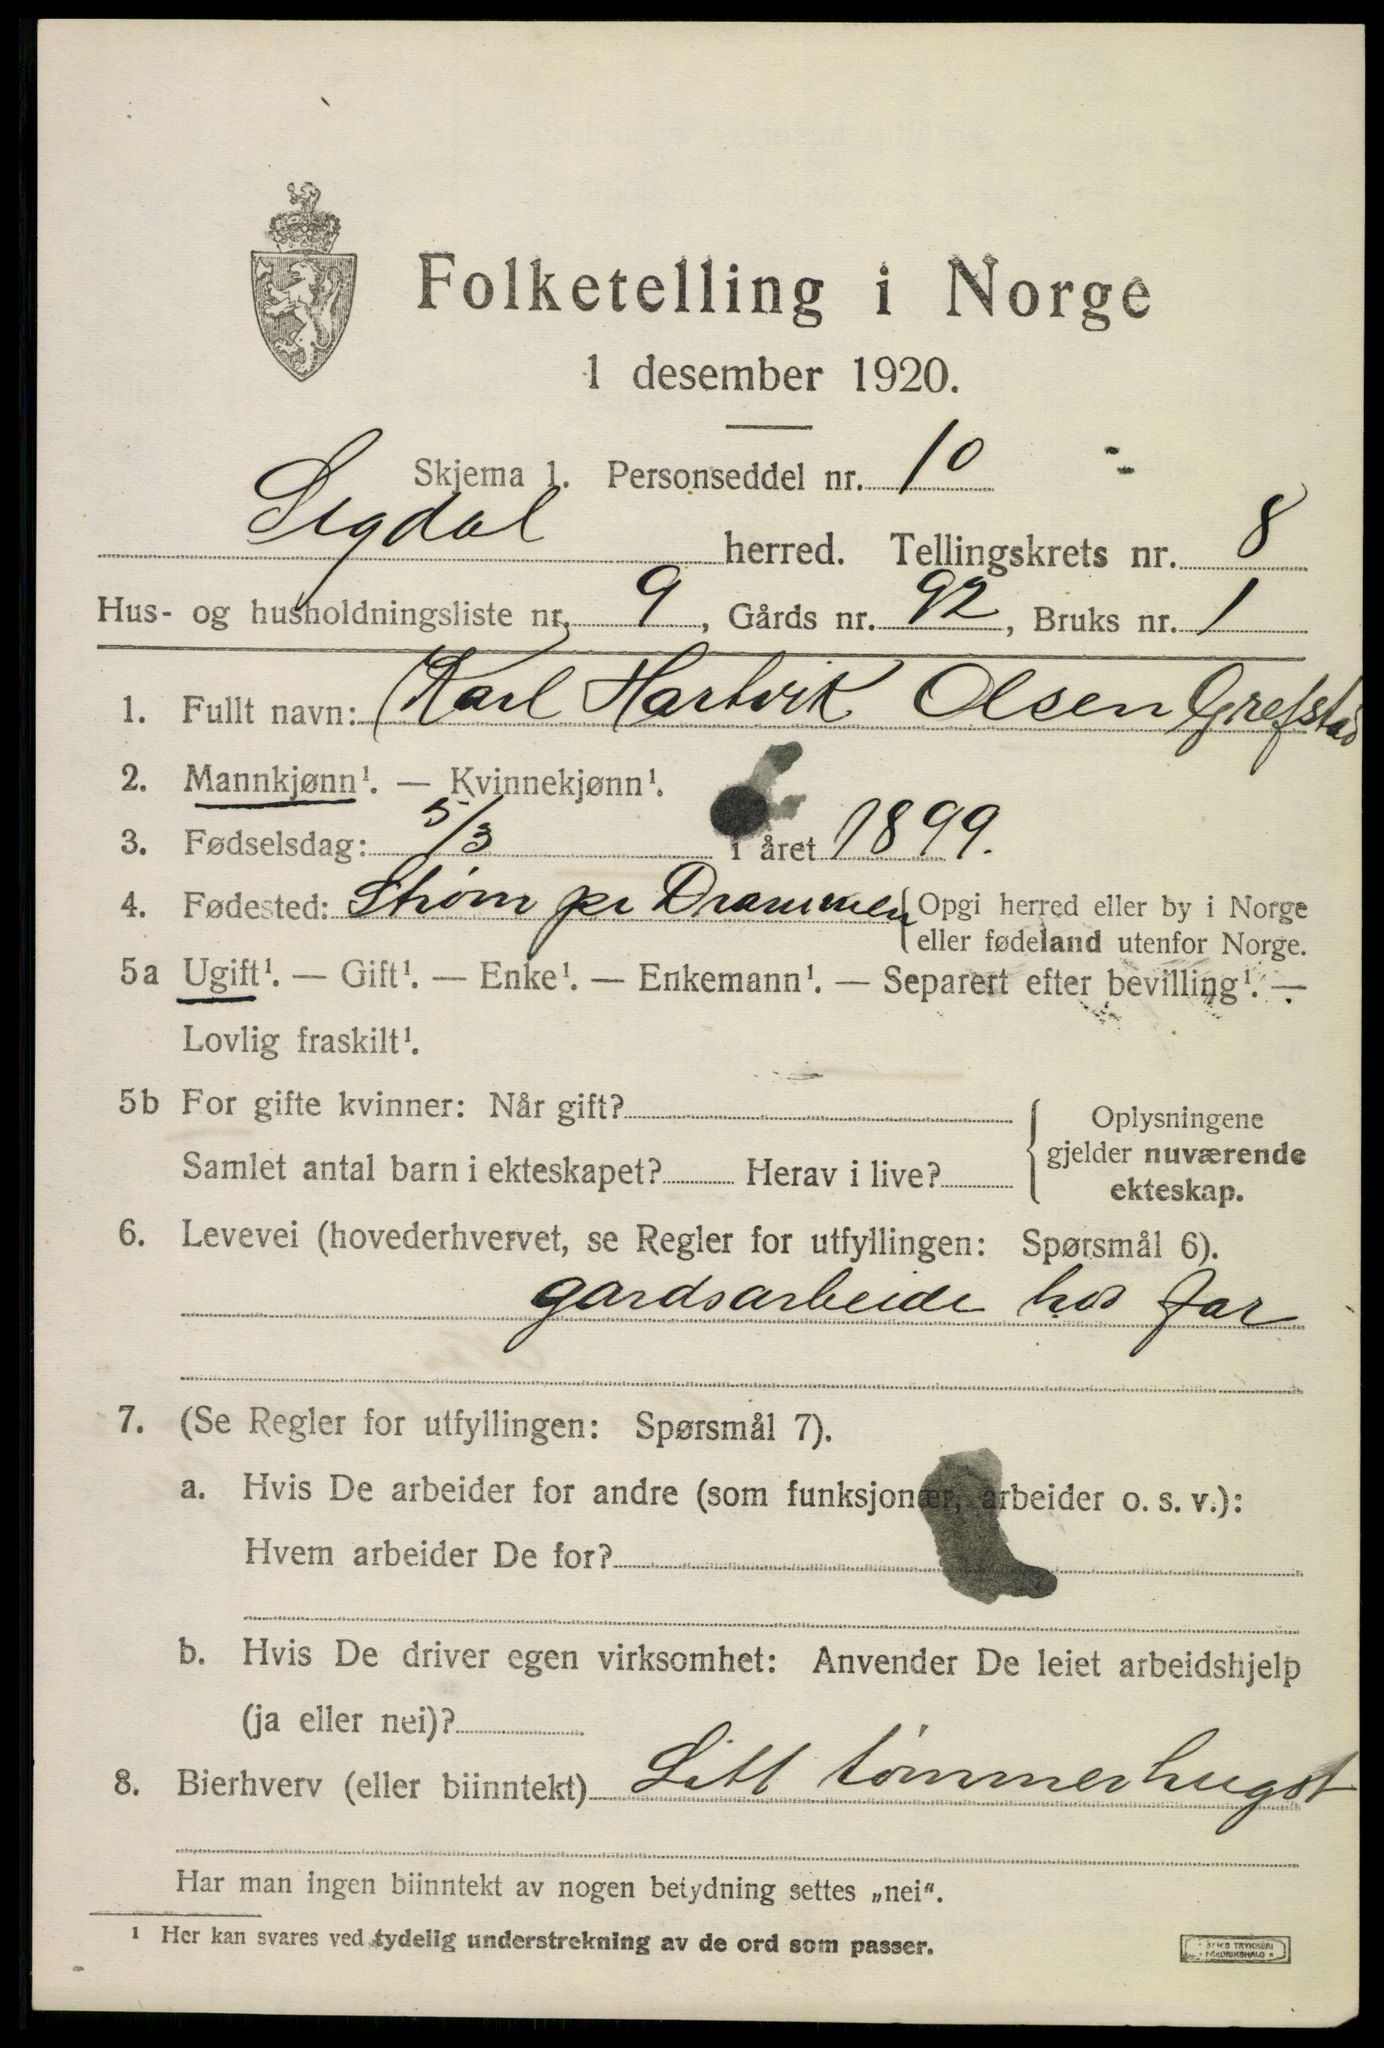 Folketelling i Norge
1 desember 1920.
Skjema 1. Personseddel nr. 10
Sigdal herred. Tellingskrets nr. 8
Hus- og husholdningsliste nr. 9, Gårds nr. 92, Bruks nr. 1
1. Fullt navn: Karl Hartvik Olsen Grefstad
2. Mannkjønn¹. — Kvinnekjønn¹.
3. Fødselsdag: 5/3 i året 1899.
4. Fødested: Strøm pr Drammen { Opgi herred eller by i Norge
eller fødeland utenfor Norge.
5a Ugift¹. — Gift¹. — Enke¹. — Enkemann¹. — Separert efter bevilling¹. —
Lovlig fraskilt¹.
5b For gifte kvinner: Når gift?
Samlet antal barn i ekteskapet? Herav i live?
{ Oplysningene
gjelder nuværende
ekteskap.
6. Levevei (hovederhvervet, se Regler for utfyllingen: Spørsmål 6).
gardsarbeide hos far
7. (Se Regler for utfyllingen: Spørsmål 7).
a. Hvis De arbeider for andre (som funksjonær, arbeider o. s. v.):
Hvem arbeider De for?
b. Hvis De driver egen virksomhet: Anvender De leiet arbeidshjelp
(ja eller nei)?
8. Bierhverv (eller biinntekt) Litt tømmerhugst
Har man ingen biinntekt av nogen betydning settes „nei“.
¹ Her kan svares ved tydelig understrekning av de ord som passer.
TRYKKERI
FREDRIKSHALD